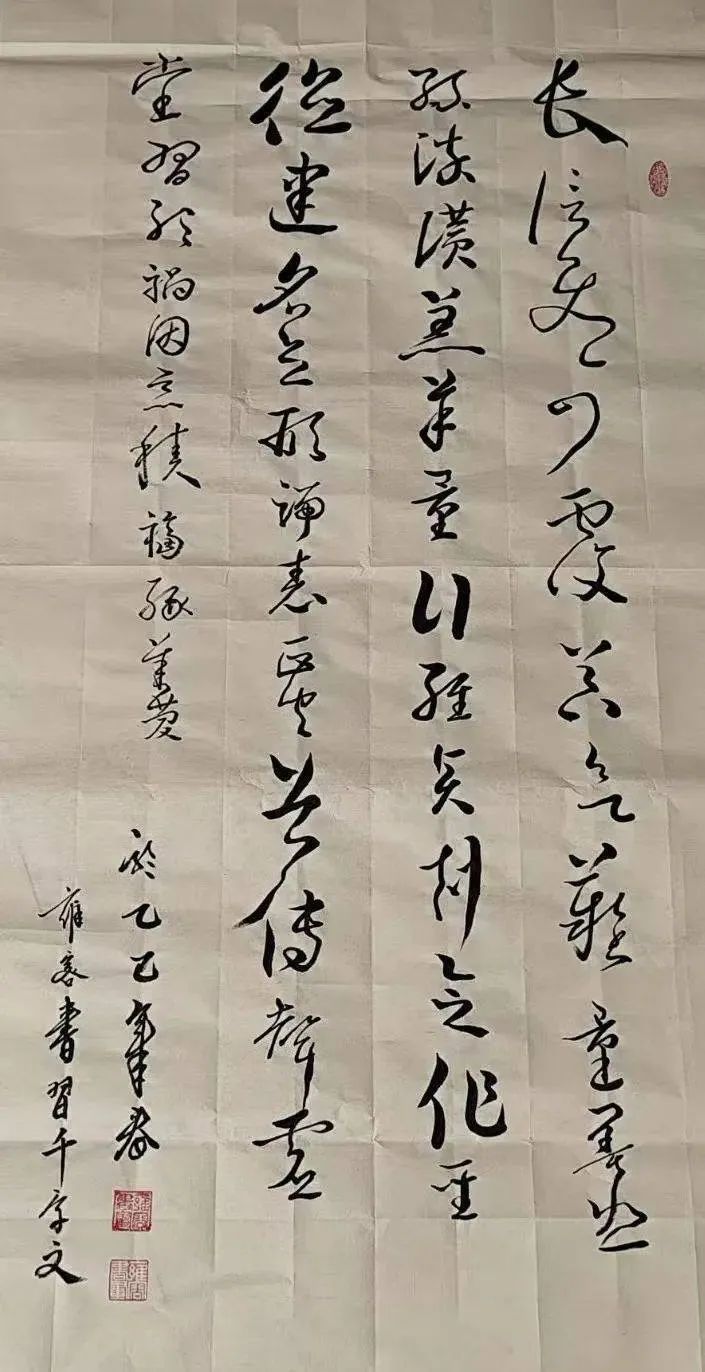 长信使可覆器欲難量墨悲
絲染讚羔羊景行維賢剋念作聖
德建名立形端表正空谷傳聲虛
堂習聽禍因惡積福緣善慶
於乙巳年春
雍書習千字文